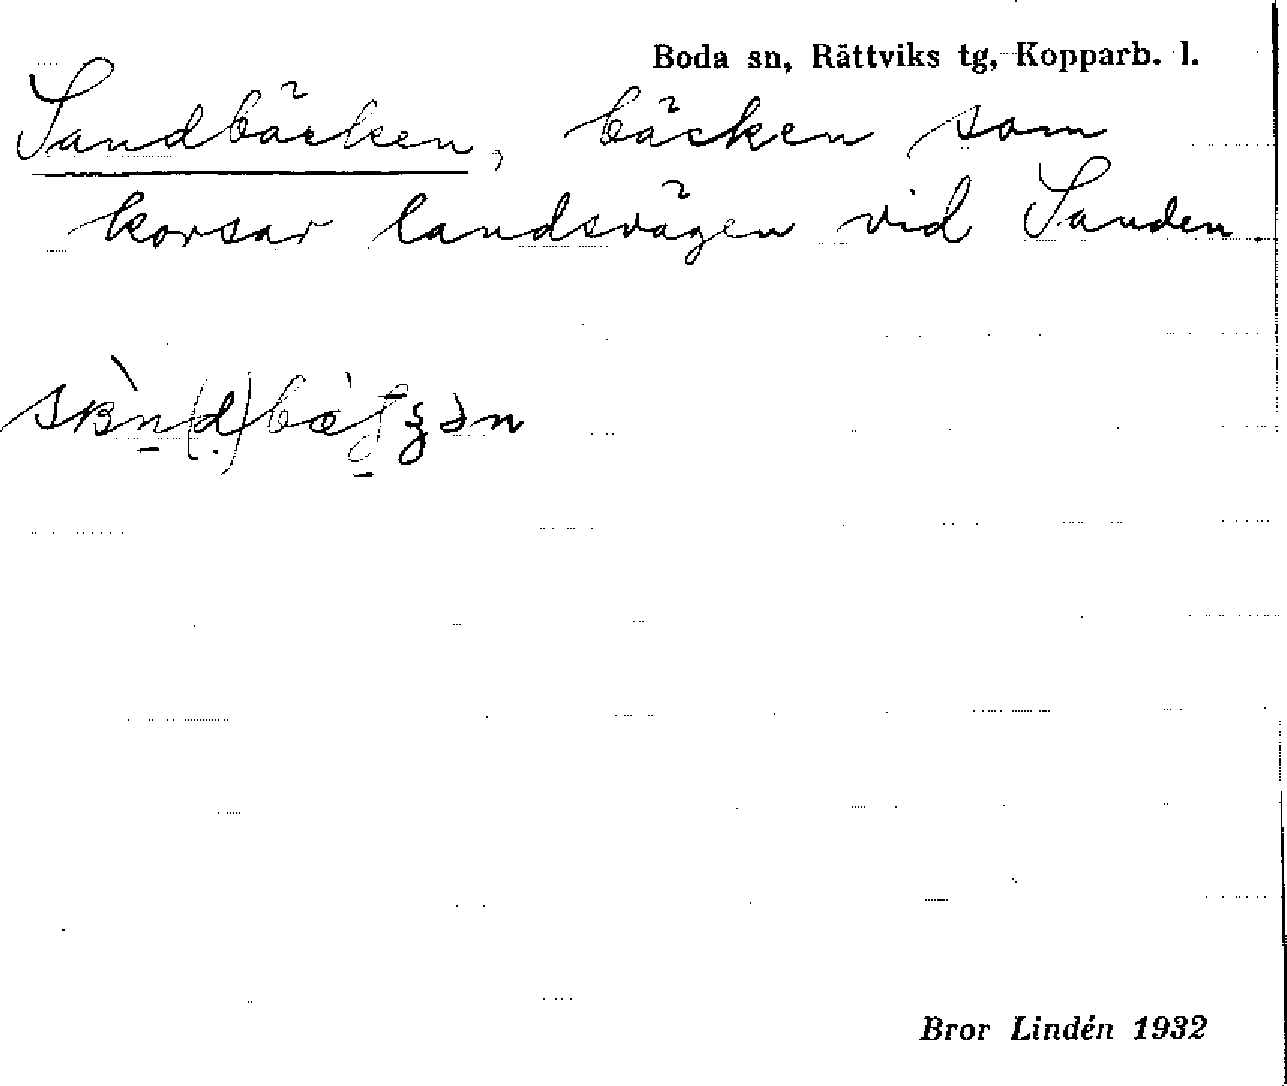 Boda sn, Rättviks tg, Kopparb. l.
Sandbäcken, bäcken som
korsar landsvägen vid Sanden.
Bror Lindén 1932